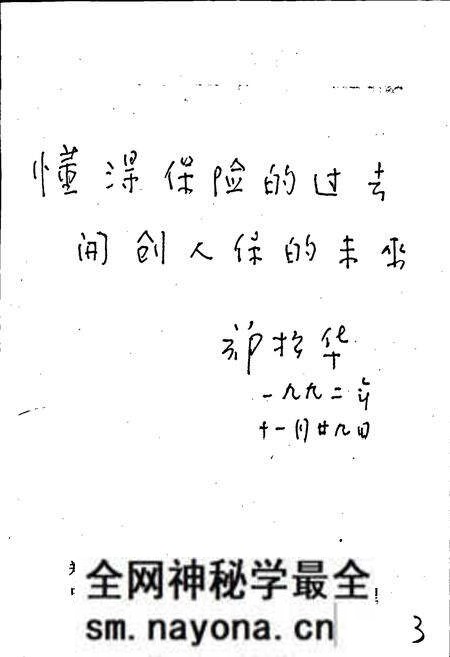 懂深保险的过去
开创人保的未来
祁振华
一九九二年
十一月廿九日
全网神秘学最全
sm.nayona.cn
3